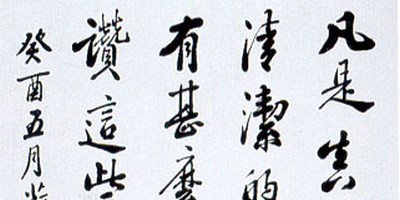 凡是真
清潔的
有甚麼
讚這些
癸酉五月